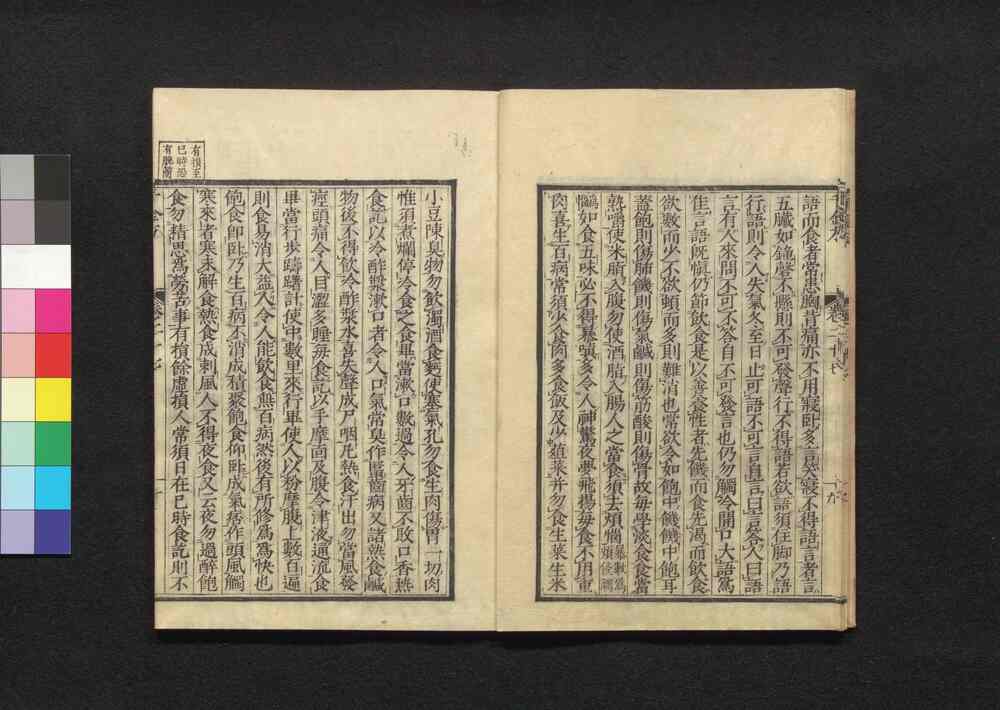 語而食者常患胸背痛亦不用寢卧多言笑寢不得語言者言
五臟如鐘磬不懸則不可發聲行不得語若欲語須住脚乃語
行語則令人失氣冬至日止可語不可言自言曰言答人曰語
言有人來問不可不答自不可發言也仍勿觸冷開口大語為
佳言語既慎仍節飲食是以善養性者先饑而食先渴而飲食
欲數而少不欲頓而多則難消也常欲令如飽中饑饑中飽耳
蓋飽則傷肺饑則傷氣鹹則傷筋酸則傷骨故每學淡食食當
熟嚼使米脂入腹勿使酒脂入腸人之當食須去煩惱暴數為煩侵觸為惱
如食五味必不得暴嗔多令人神驚夜夢飛揚每食不用重
肉喜生百病常須少食肉多食飯及少葅菜并勿食生菜生米
小豆陳臭物勿飲濁酒食麪使塞氣孔勿食生肉傷胃一切肉
惟須煮爛停冷食之食畢當漱口數過令人牙齒不敗口香熱
食訖以冷酢漿漱口者令人口氣常臭作䘌齒病又諸熱食鹹
物後不得飲冷酢漿水喜失聲成尸咽凡熱食汗出勿當風發
痙頭痛令人目澀多睡每食訖以手摩面及腹令津液通流食
畢當行步躊躇計使中數里來行畢使人以粉摩腹上數百遍
則食易消大益人令人能飲食無百病然後有所修為為快也
飽食即卧乃生百病不消成積聚飽食仰卧成氣痞作頭風觸
寒來者寒未解食熱食成刺風人不得夜食又云夜勿過醉飽
食勿精思為勞苦事有損餘虛損人常須日在巳時食訖則不
有損至
巳時恐
有脫簡